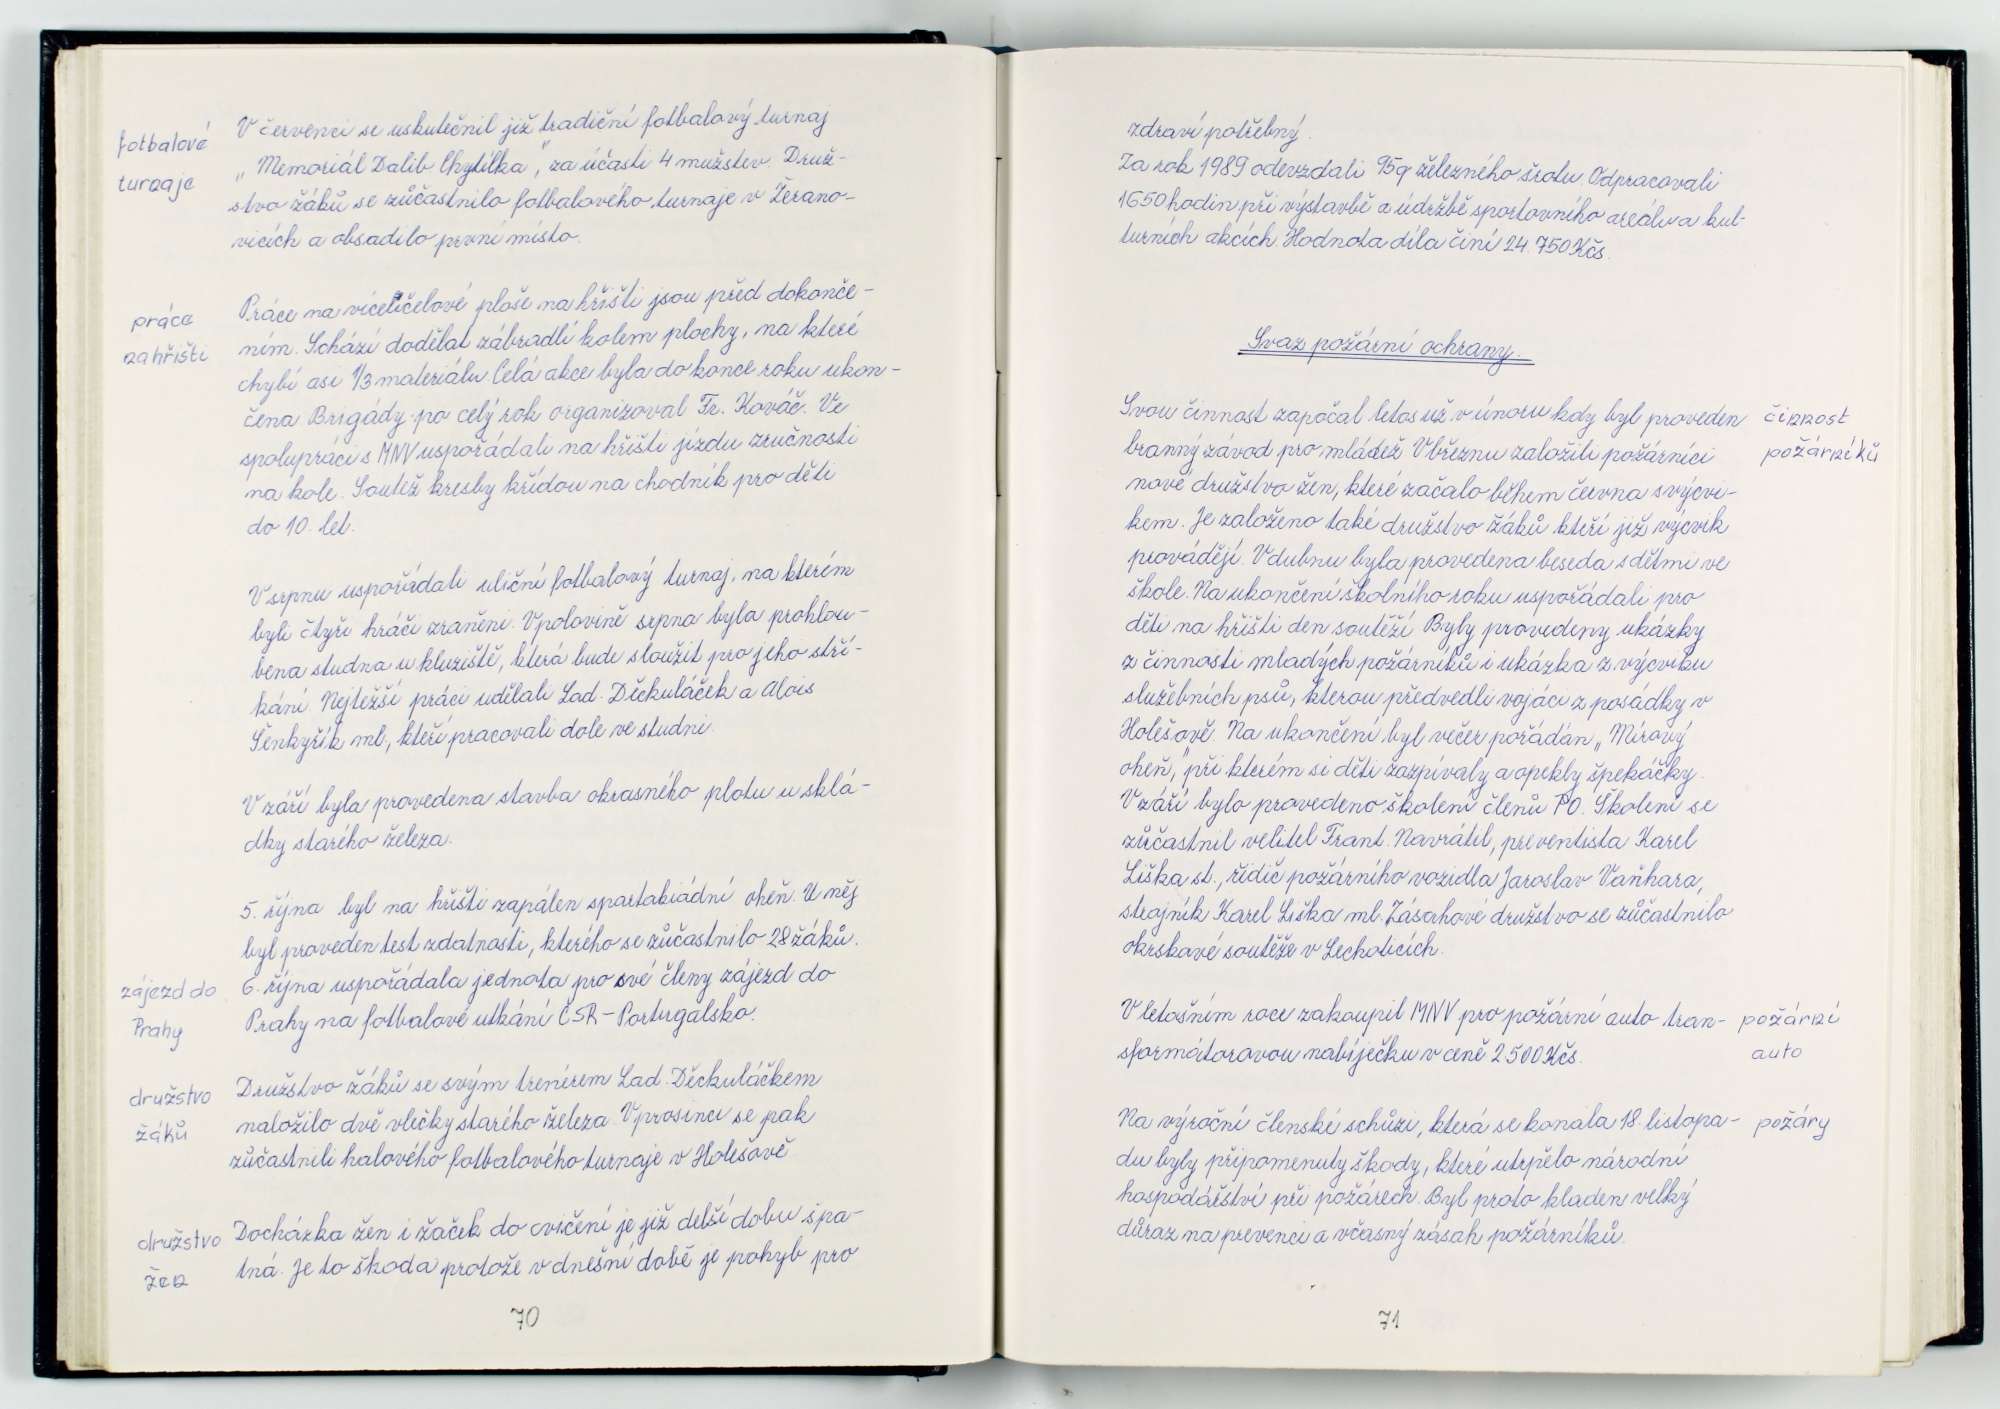 fotbalové
turnaje
V červenci se uskutečnil již tradiční fotbalový turnaj
„Memoriál Dalib Chytilka", za účasti 4 mužstev. Druž-
stvo žáků se zúčastnilo fotbalového turnaje v Žerano-
vicích a obsadilo první místo.
práce
na hřišti
Práce na víceúčelové ploše na hřišti jsou před dokonče-
ním. Schází dodělat zábradlí kolem plochy, na které
chybí asi 1/3 materiálu. Celá akce byla do konce roku ukon-
čena. Brigády po celý rok organizoval Fr. Kováč. Ve
spolupráci s MNV uspořádali na hřišti jízdu zručnosti
na kole. Soutěž kresby křídou na chodník pro děti
do 10. let.
V srpnu uspořádali uliční fotbalový turnaj, na kterém
byli čtyři hráči zraněni. V polovině srpna byla prohlou-
bena studna u kluziště, která bude sloužit pro jeho stří-
kání. Nejtežší práci udělali Lad. Děckuláček a Alois
Šenkyřík ml., kteří pracovali dole ve studni.
V září byla provedena stavba okrasného plotu u sklá-
dky starého železa.
5. října byl na hřišti zapálen spartakiádní oheň. U něj
byl proveden test zdatnosti, kterého se zůčastnilo 28 žáků.
zájezd do
Prahy
6. října uspořádala jednota pro své členy zájezd do
Prahy na fotbalové utkání ČSR-Portugalsko.
družstvo
žáků
Družstvo žáků se svým trenérem Lad. Děckuláčkem
naložilo dvě vlečky starého železa. V prosinci se pak
zůčastnili halového fotbalového turnaje v Holešově
družstvo
žen
Docházka žen i žaček do cvičení je již delší dobu špa-
tná. Je to škoda protože v dnešní době je pohyb pro
70
zdraví potřebný.
Za rok 1989 odevzdali 95q železného šrotu. Odpracovali
1650 hodin při výstavbě a údržbě sportovního areálu a kul-
turních akcích. Hodnota díla činí 24.750 Kčs.
Svaz požární ochrany.
Svou činnost započal letos už v únoru kdy byl proveden
branný závod pro mládež. V březnu založili požárníci
nové družstvo žen, které začalo během června s výcvi-
kem. Je založeno také družstvo žáků kteří již výcvik
provádějí. V dubnu byla provedena beseda s dětmi ve
škole. Na ukončení školního roku uspořádali pro
děti na hřišti den soutěží. Byly provedeny ukázky
z činnosti mladých požárníků i ukázka z výcviku
služebních psů, kterou předvedli vojáci z posádky v
Holešově. Na ukončení byl večer pořádán „Mírový
oheň," při kterém si děti zazpívaly a opekly špekáčky.
V září bylo provedeno školení členů PO. Školení se
zůčastnil velitel Frant. Navrátil, preventista Karel
Liška st., řidič požárního vozidla Jaroslav Vaňhara,
strojník Karel Liška ml. Zásahové družstvo se zůčastnilo
okrskové soutěže v Lechoticích.
činnost
požárníků
V letošním roce zakoupil MNV pro požární auto tran-
sformátorovou nabíječku v ceně 2500 Kčs.
požární
auto
Na výroční členské schůzi, která se konala 18. listopa-
du byly připomenuty škody, které utrpělo národní
hospodářství při požárech. Byl proto kladen velký
důraz na prevenci a včasný zásah požárníků.
požáry
71